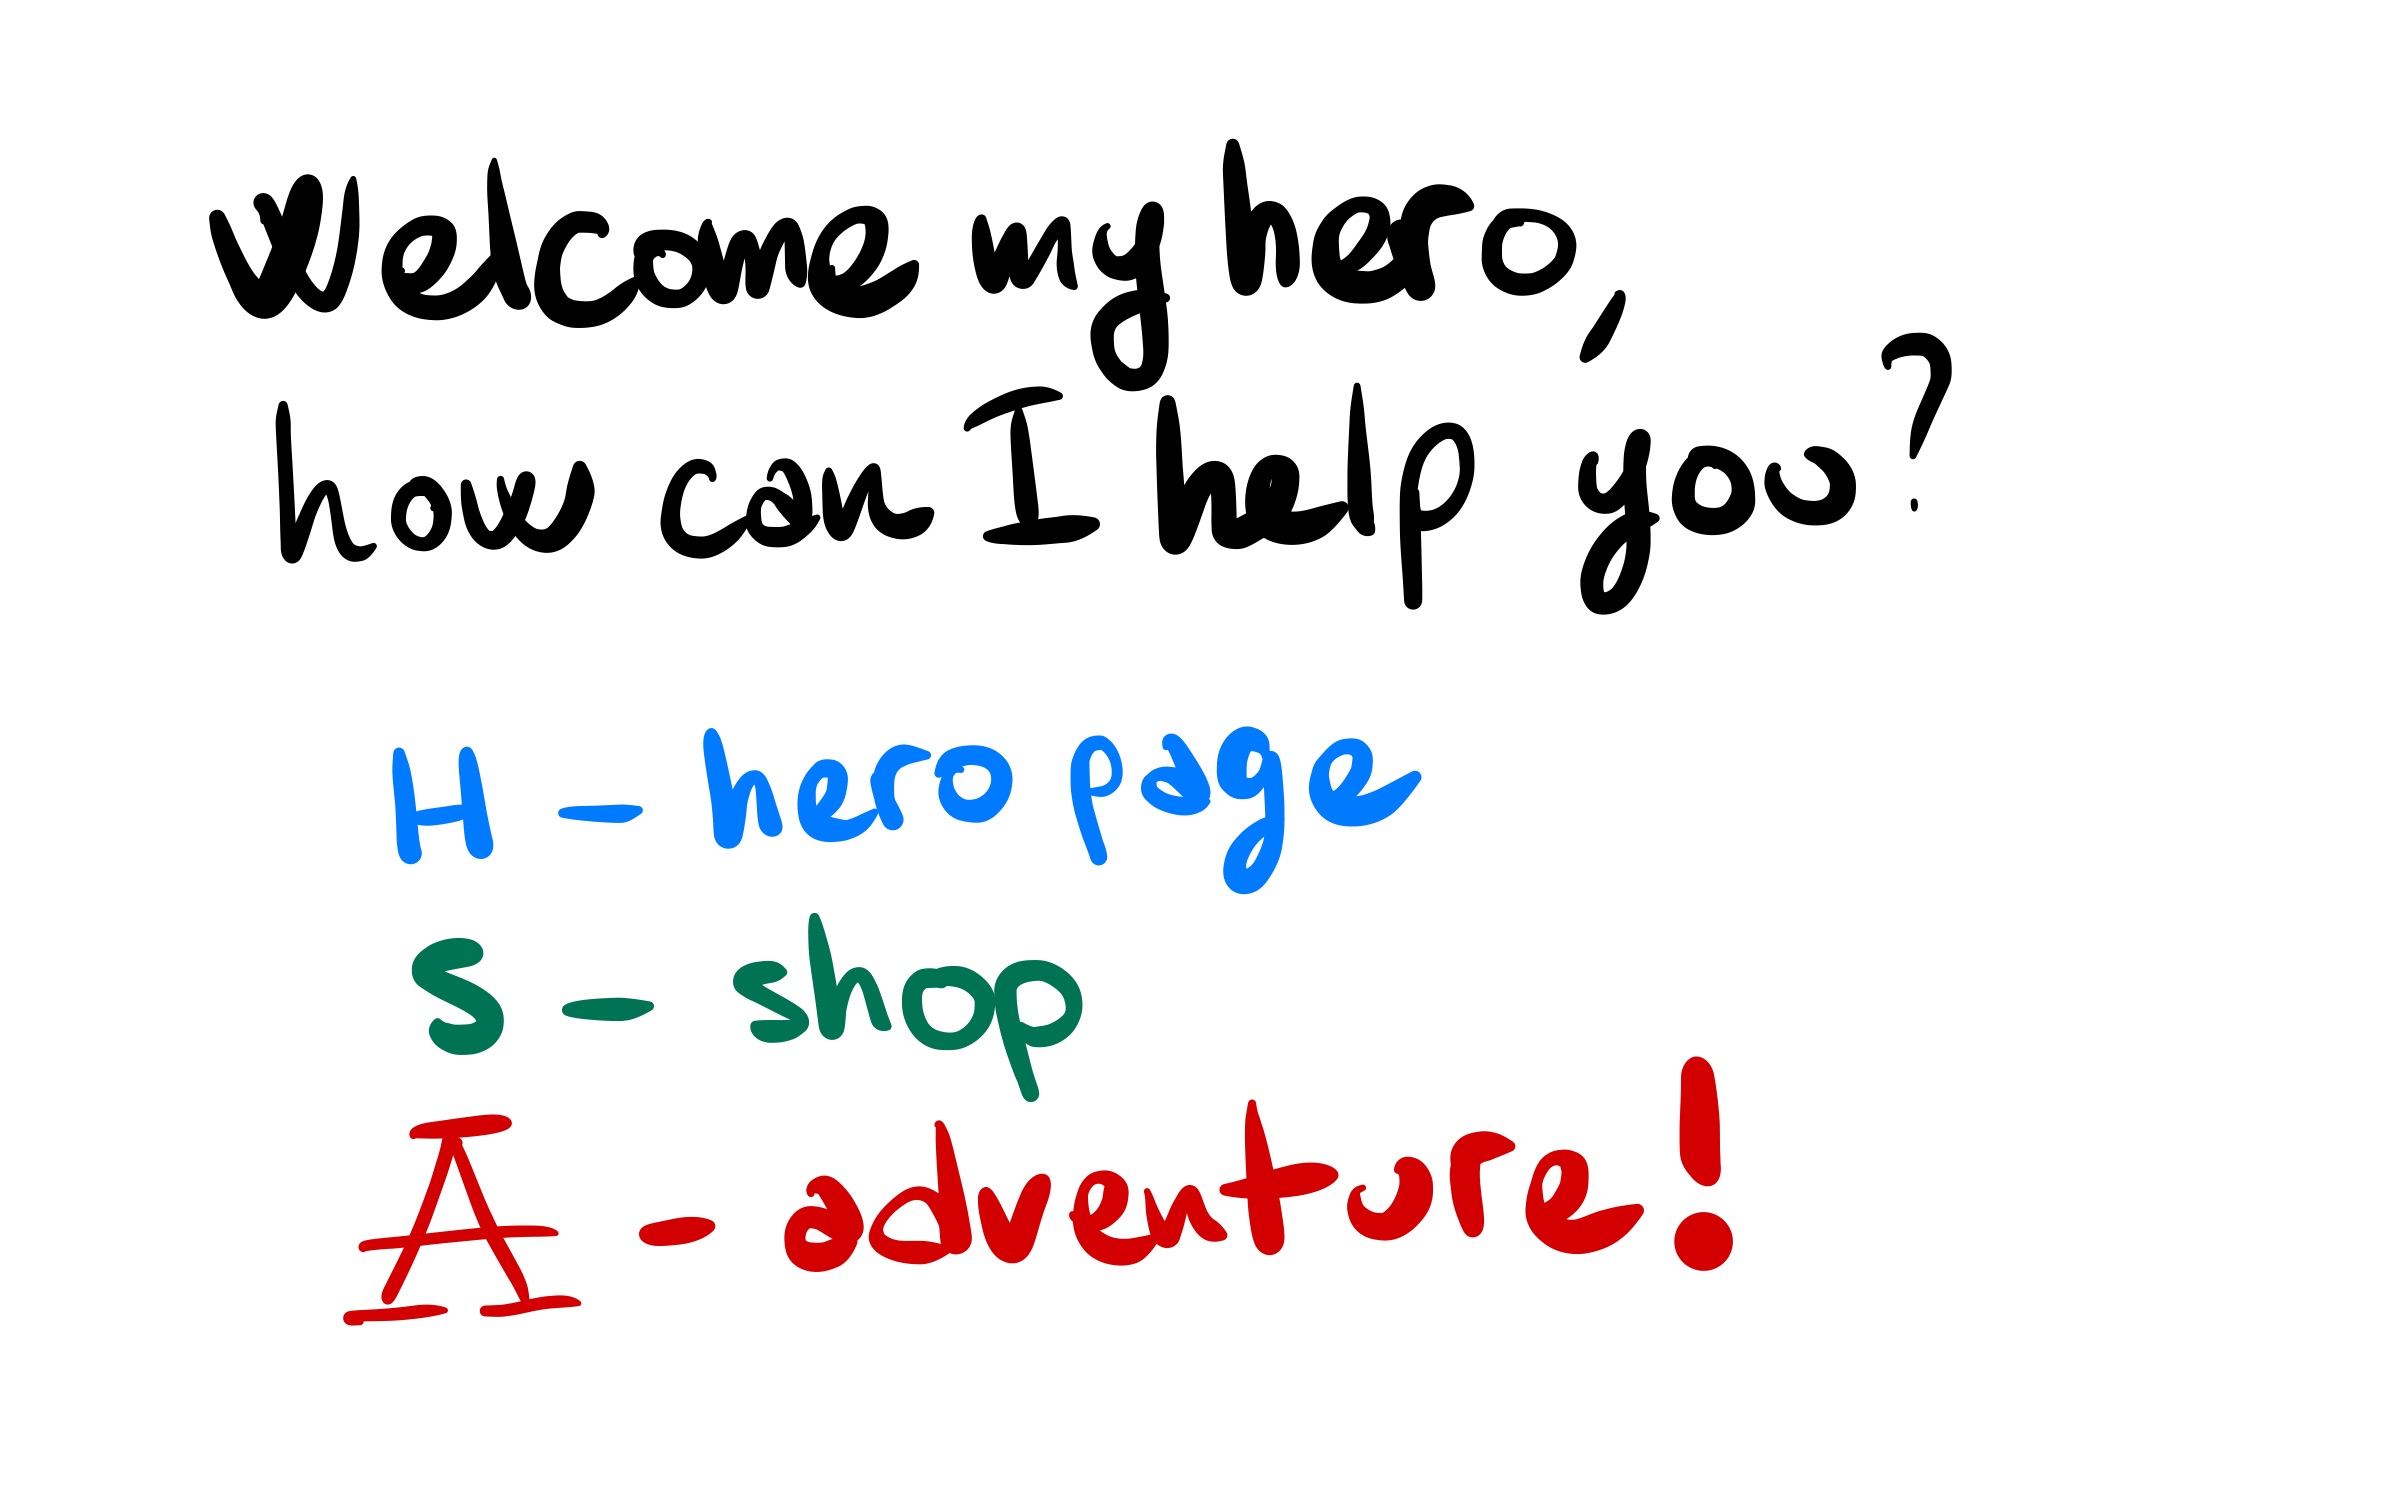 Welcome my hero,
how can I help you?
H - hero page
S - shop
A - adventure!